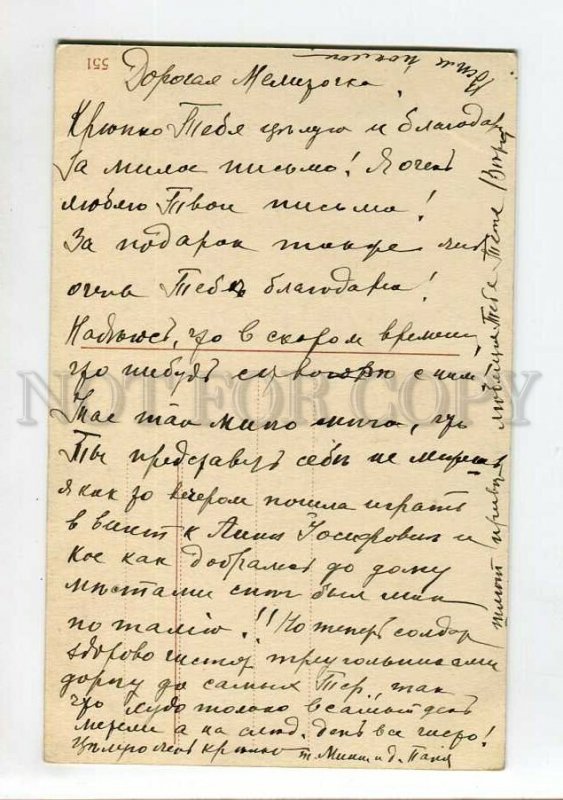 551
Дорогая Мелизочка,
Крѣпко Тебя цѣлую и благодар
За милое письмо! Я очень
люблю Твои письма!
За подарок также
очень Тебѣ благодарна!
Надѣюсь, что в скором времени,
что нибудь с ним
У нас так много снега, что
Ты представить себѣ не можешь
я как то вечером пошла играть
в винт к Анне Иосифовне и
кое как добралась до дому
мѣстами снег был мне
по талию!! Но теперь солдаты
здорово чистят треугольниками
дорогу до самых Тер., так
что худо только в самый день
метели а на слѣд. день все чисто!
Цѣлую крѣпко т. Мими и д. Паня
любящая Тебя Тетя
NOT FOR COPY